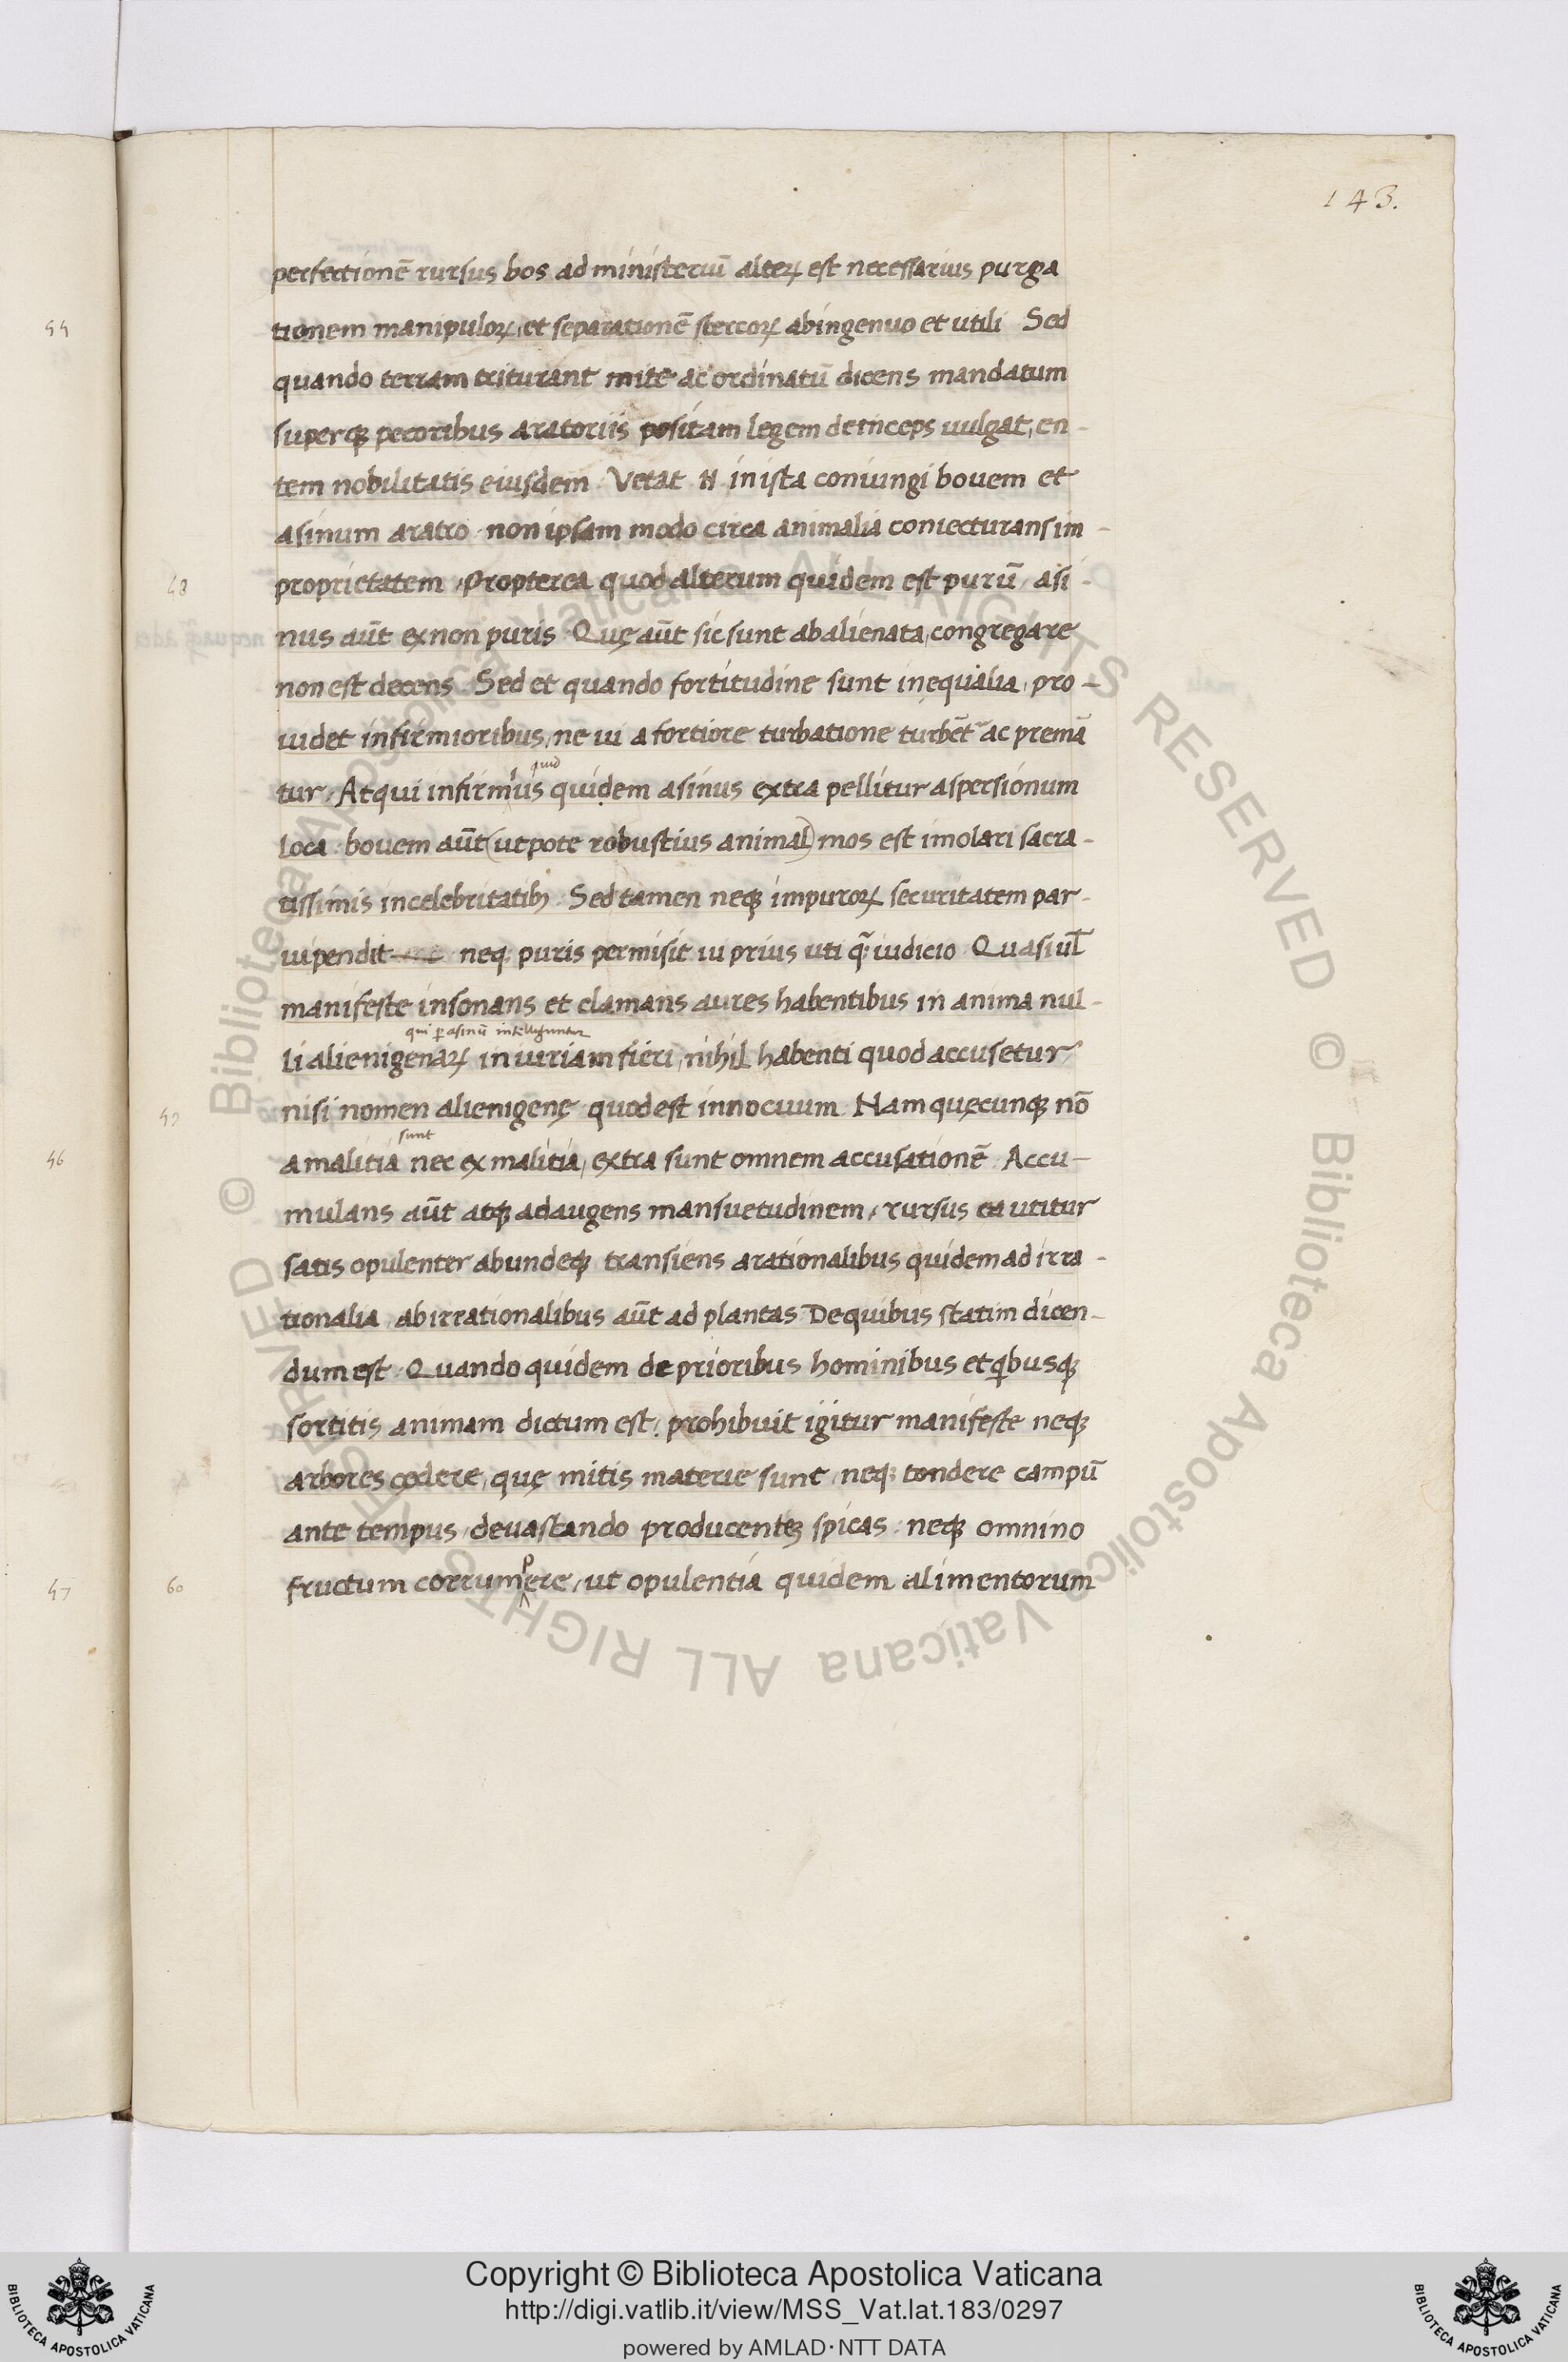 143.
perfectionē rursus bos ad ministeriū alteꝝ est necessarius purga
tionem manipuloꝝ, et separationē stercoꝝ ab ingenuo et utili Sed
quando terram triturant mite ac ordinatū dicens mandatum
superqꝫ pecoribus aratoriis positam legem deinceps uulgat, en-
tem nobilitatis eiusdem. Vetat .N. in ista coniungi bouem et
asinum aratro. non ipsam modo circa animalia coniecturans im-
proprietatem. Propterea quod alterum quidem est purū, asi-
nus aūt ex non puris. Quę aūt sic sunt abalienata, congregare
non est decens. Sed et quando fortitudine sunt inequalia, pro-
uidet infirmioribus, ne ui a fortiore turbatione turbēt ac premā
quid
tur. Atqui infirmius quidem asinus extra pellitur aspersionum
loca. bouem aūt (utpote robustius animal) mos est imolari sacra-
tissimis in celebritatibꝫ. Sed tamen neqꝫ impuroꝝ securitatem par-
uipendit neqꝫ puris permisit ui prius uti q̄ꝫ iudicio Quasi ul̄
manifeste insonans et clamans aures habentibus in anima nul-
qui ꝑ asinū intelliguntur
li alienigenaꝝ iniuriam fieri, nihil habenti quod accusetur
nisi nomen alienigenę quod est innocuum. Nam quęcunqꝫ nō
sunt
a malitia nec ex malitia, extra sunt omnem accusationē. Accu-
mulans aūt atqꝫ adaugens mansuetudinem, rursus ea utitur
satis opulenter abundeqꝫ transiens a rationalibus quidem ad irra-
tionalia, ab irrationalibus aūt ad plantas. De quibus statim dicen-
dum est. Quando quidem de prioribus hominibus et qbusqꝫ
sortitis animam dictum est. prohibuit igitur manifeste neqꝫ
arbores cędere, quę mitis materie sunt, neqꝫ tondere campū
ante tempus, deuastando producenteꝫ spicas. neqꝫ omnino
p
fructum corrumere, ut opulentia quidem alimentorum
55
48
59
46
47
60
© Biblioteca Apostolica Vaticana ALL RIGHTS RESERVED © Biblioteca Apostolica Vaticana ALL RIGHTS RESERVED
BIBLIOTECA APOSTOLICA VATICANA
Copyright © Biblioteca Apostolica Vaticana
http://digi.vatlib.it/view/MSS_Vat.lat.183/0297
powered by AMLAD·NTT DATA
BIBLIOTECA APOSTOLICA VATICANA